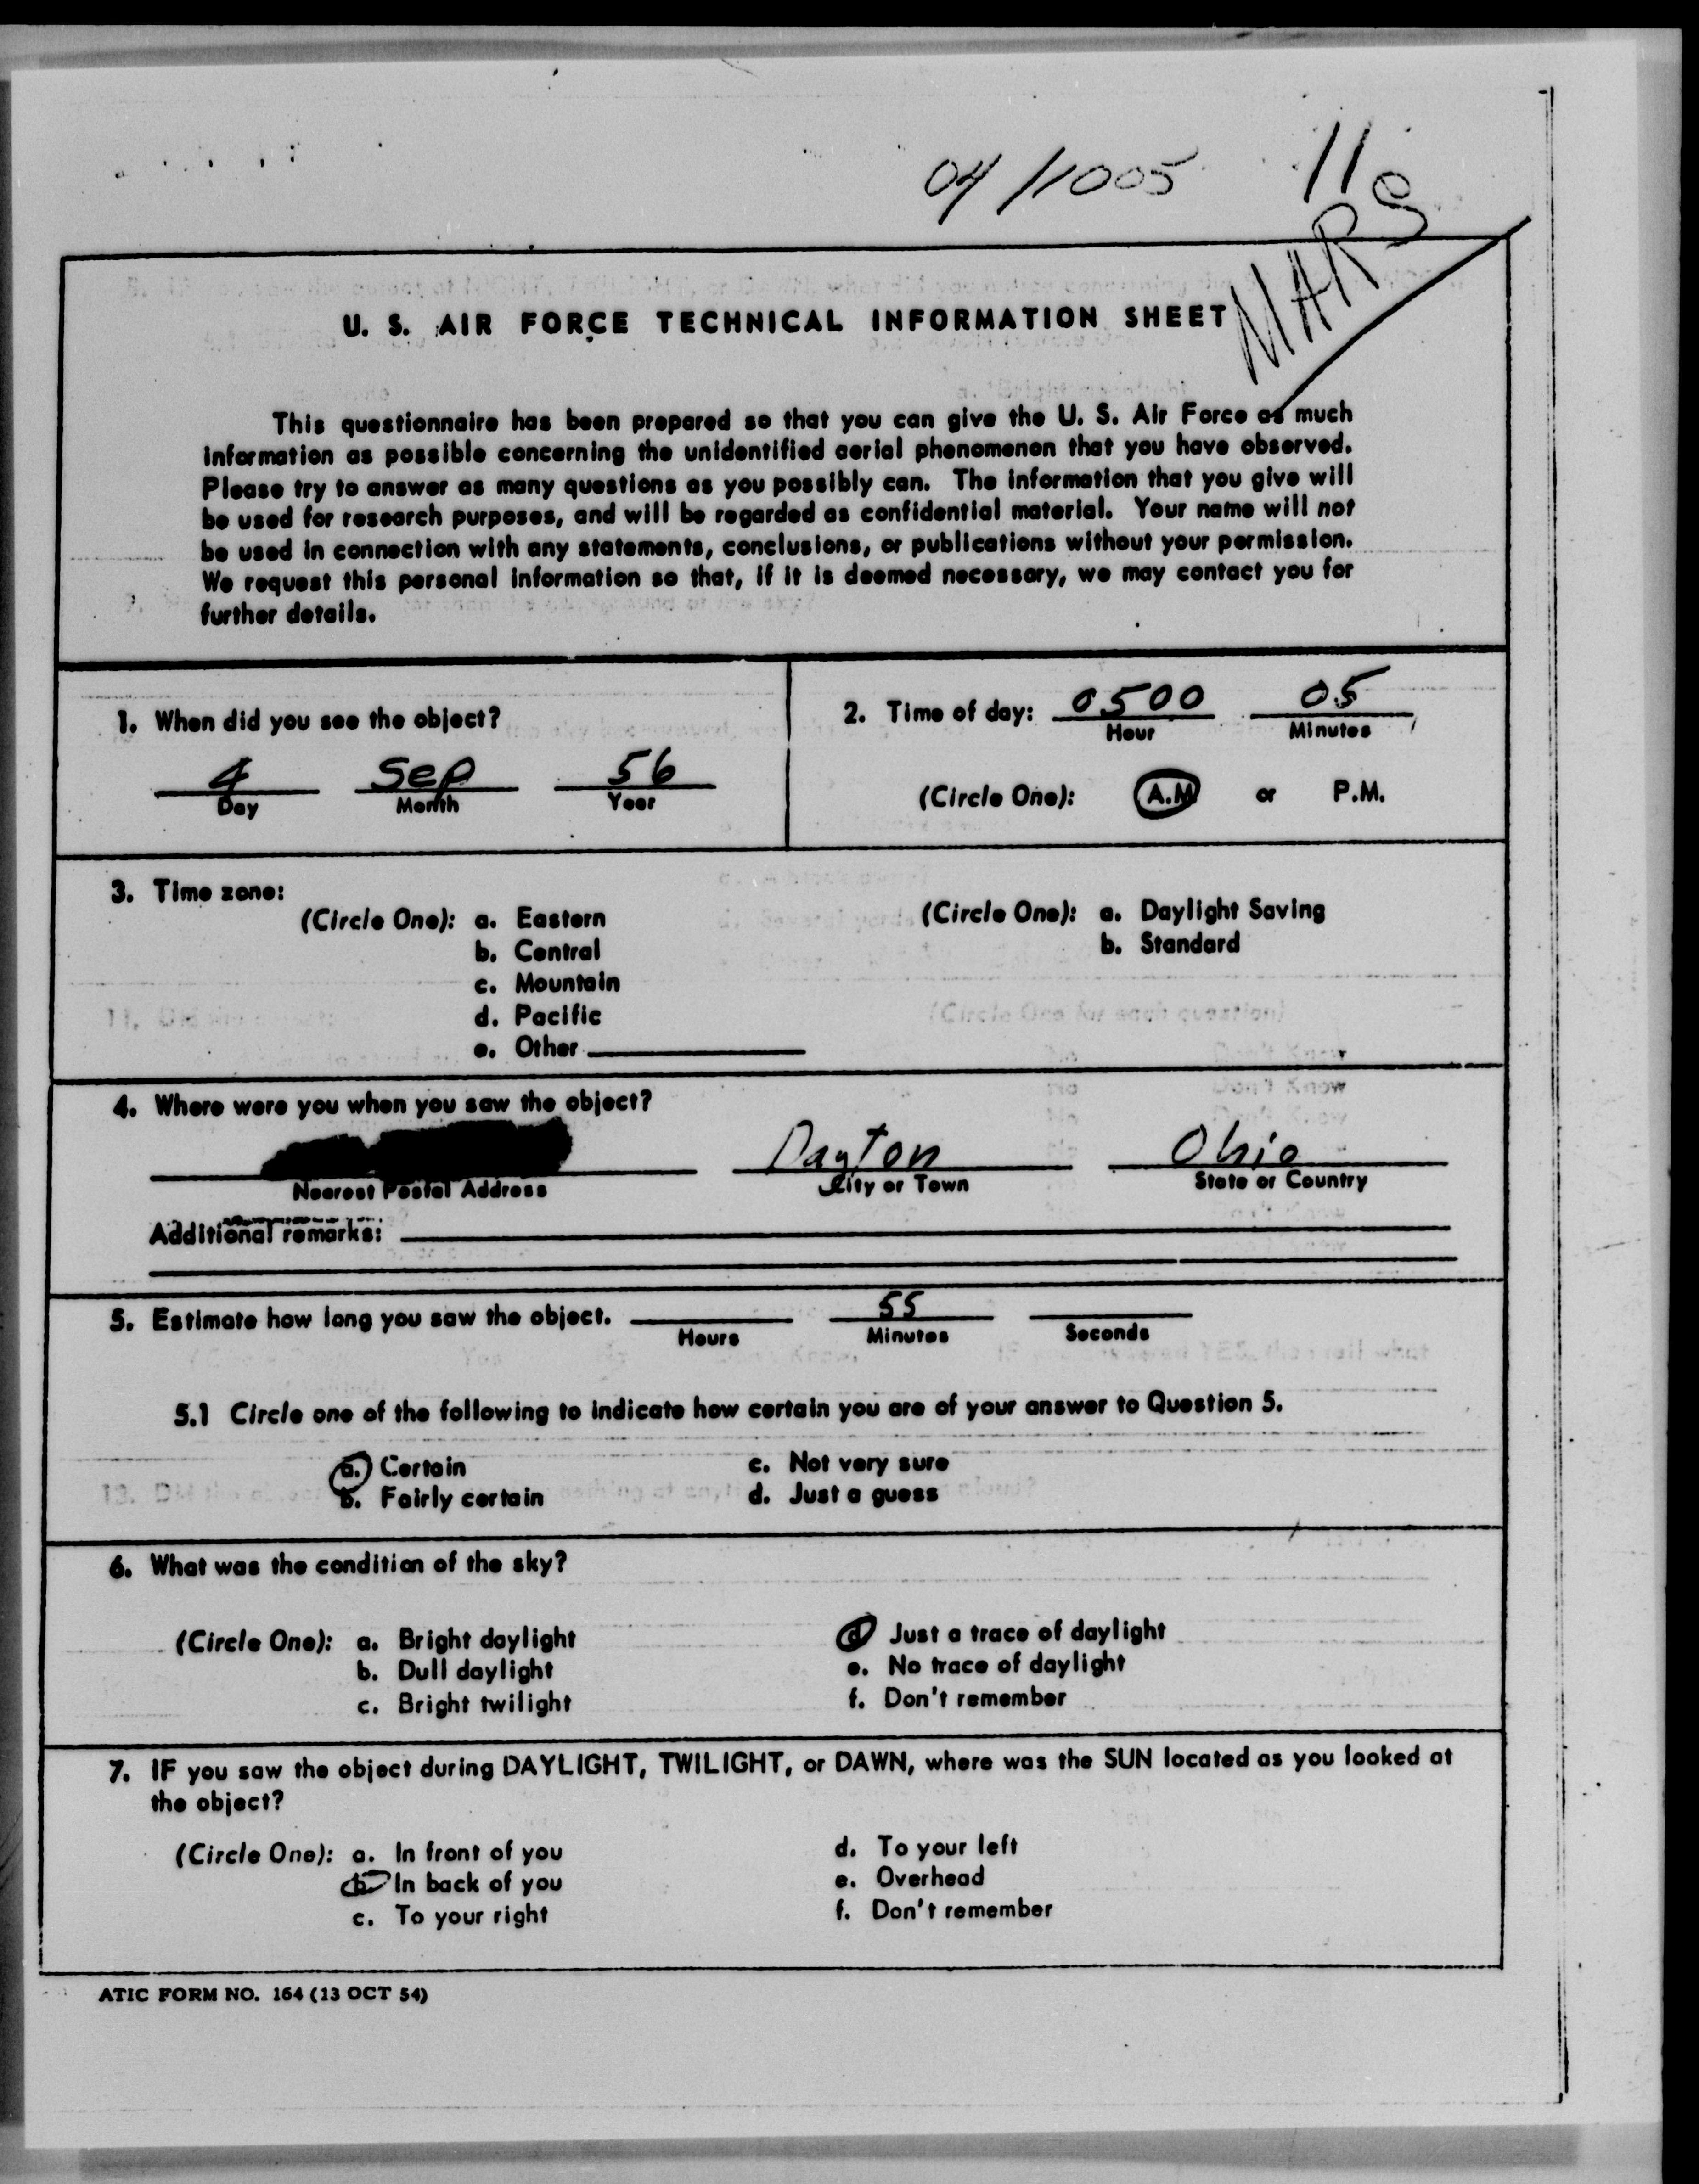 04/1005 11
MARS
U. S. AIR FORCE TECHNICAL INFORMATION SHEET
This questionnaire has been prepared so that you can give the U. S. Air Force as much
information as possible concerning the unidentified aerial phenomenon that you have observed.
Please try to answer as many questions as you possibly can. The information that you give will
be used for research purposes, and will be regarded as confidential material. Your name will not
be used in connection with any statements, conclusions, or publications without your permission.
We request this personal information so that, if it is deemed necessary, we may contact you for
further details.
1. When did you see the object?
4 Sep 56
Day Month Year
2. Time of day: 0500 05
Hour Minutes
(Circle One): A.M. or P.M.
3. Time zone:
(Circle One): a. Eastern
b. Central
c. Mountain
d. Pacific
e. Other
(Circle One): a. Daylight Saving
b. Standard
4. Where were you when you saw the object?
Dayton Ohio
Nearest Postal Address City or Town State or Country
Additional remarks:
5. Estimate how long you saw the object. 55
Hours Minutes Seconds
5.1 Circle one of the following to indicate how certain you are of your answer to Question 5.
a. Certain c. Not very sure
b. Fairly certain d. Just a guess
6. What was the condition of the sky?
(Circle One): a. Bright daylight d. Just a trace of daylight
b. Dull daylight e. No trace of daylight
c. Bright twilight f. Don't remember
7. IF you saw the object during DAYLIGHT, TWILIGHT, or DAWN, where was the SUN located as you looked at
the object?
(Circle One): a. In front of you d. To your left
b. In back of you e. Overhead
c. To your right f. Don't remember
ATIC FORM NO. 164 (13 OCT 54)